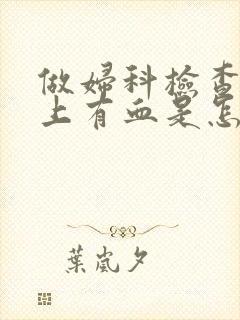 做婦科檢查
上有血是怎
葉嵐夕